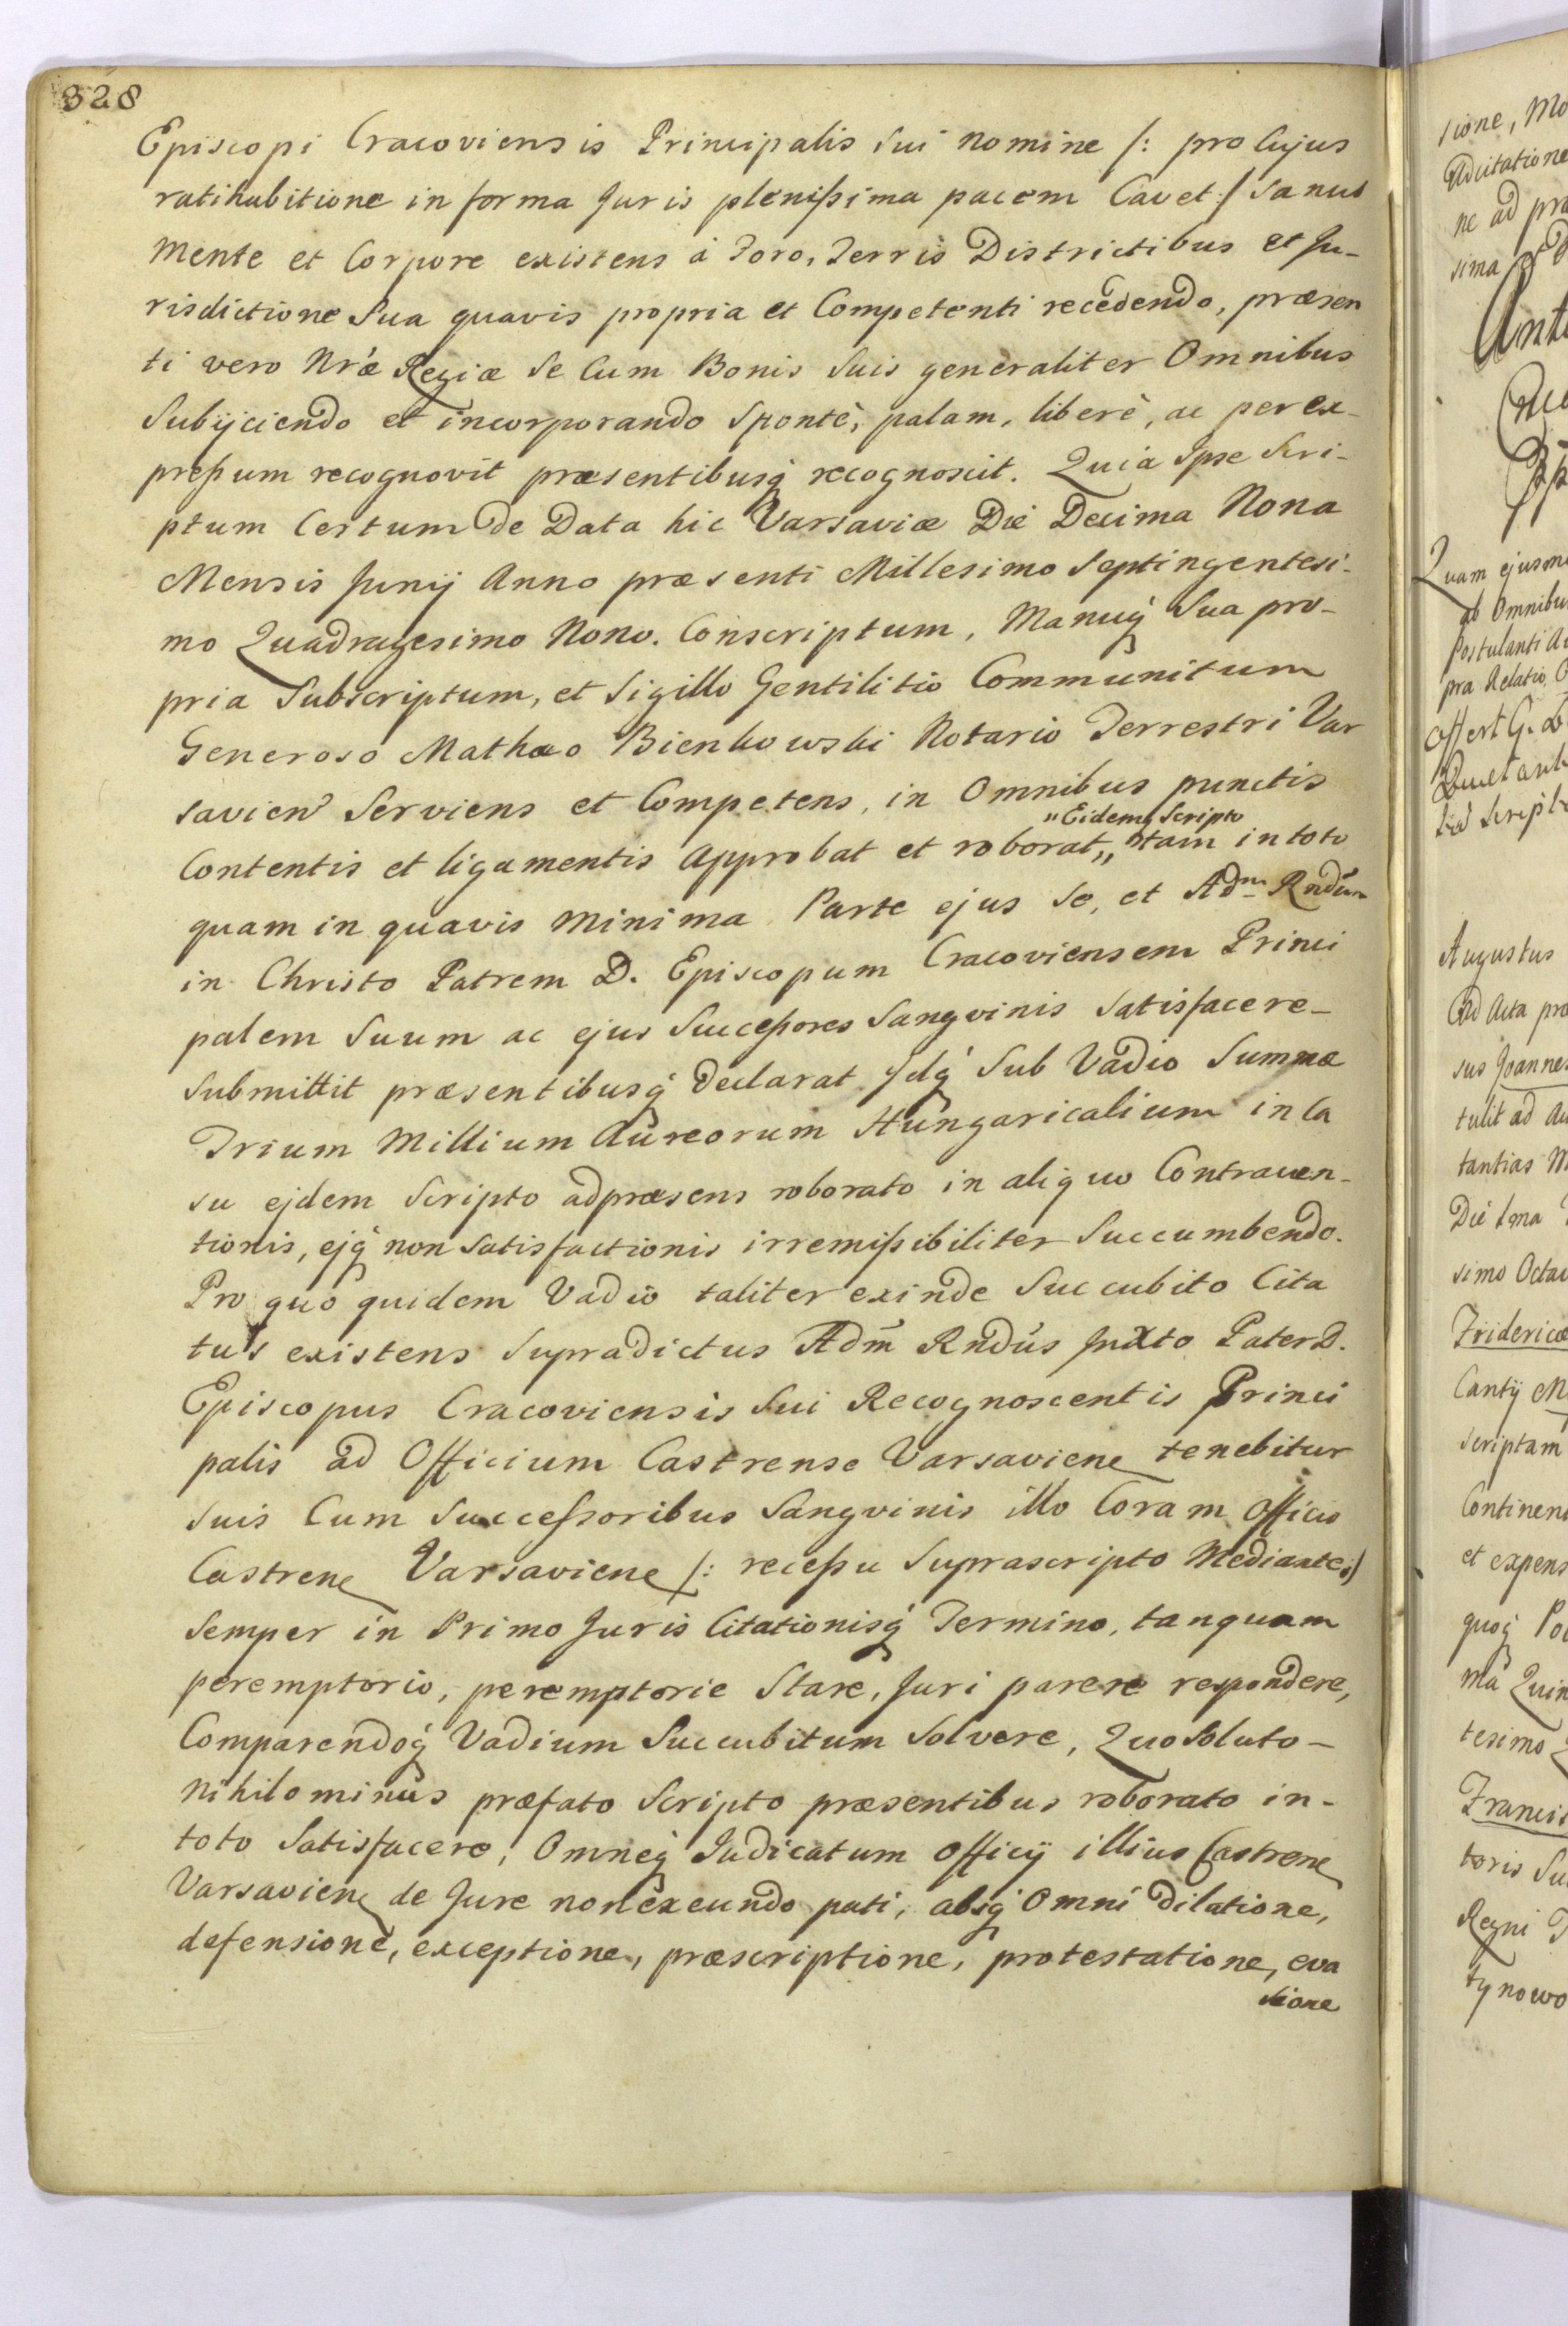 328
Episcopi Cracoviensis Principalis Sui nomine /: pro Cujus
ratihabitione in forma Juris plenissima pacem Cavet :/ Sanus
mente et Corpore existens à Foro, Terris Districtibus et Ju-
risdictione Sua quavis propria et Competenti recedendo, præsen
ti vero Nræ Regiæ Se Cum Bonis Suis generaliter Omnibus
Subijciendo et incorporando Spontè, palam, liberè, ac per ex-
pressum recognovit præsentibusq́ recognoscit. Quia Ipse Scri-
ptum Certum de Data hic Varsaviæ Diè Decima Nona
Mensis Junij Anno præsenti Millesimo Septingentesi-
mo Quadragesimo Nono. Conscriptum, Manuq́ Sua pro-
pria Subscriptum, et Sigillo Gentilitio Communitum
Generoso Mathæo Bienkowski Notario Terrestri Var
savien Serviens et Competens, in Omnibus punctis
"Eidemq́ Scripto
Contentis et ligamentis Approbat et roborat,, tam in toto
quam in quavis minima Parte ejus Se, et Adm Rndum
in Christo Patrem D. Episcopum Cracoviensem Princi
palem Suum ac ejus Successores Sangvinis Satisfacere-
Submittit præsentibusq́ declarat Idq́ Sub Vadio Summæ
Trium Millium Aureorum Hungaricalium in Ca
su ejdem Scripto adpræsens roborato in aliquo Contraven-
tionis, ejq́ non Satisfactionis irremissibiliter Succumbendo.
Pro quo quidem Vadio taliter exinde Succubito Cita
tus existens Supradictus Adm̃ Rndus Inxto Pater D.
Episcopus Cracoviensis Sui Recognoscentis Princi
palis ad Officium Castrense Varsaviene tenebitur
Suis Cum Successoribus Sangvinis illo Coram Officio
Castrene Varsaviene /: recessu Suprascripto Mediante :/
Semper in Primo Juris Citationisq́ Termino, tanquam
peremptorio, peremptorie Stare, Juri parere respondere,
Comparendoq́ Vadium Succubitum Solvere, Quo Soluto-
nihilominus præfato Scripto præsentibus roborato in-
toto Satisfacere, Omneq́ Judicatum Officij illius Castrene
Varsaviene de Jure non exeundo pati, absq́ Omni Dilatione,
defensione, exceptione, præscriptione, protestatione, eva
sione
sione, Mo
Adcitatione
ne ad pra
sima
Quam ejusmo
ab Omnibu
Postulanti
pra Relatio
Offert G.
Script
Augustus
Ad Acta pro
sus Joannes
tulit ad
tantias M
Diè Ima
simo Octav
Fridericæ
Cantij M
Scriptam
Continen
et expens
quoq́ Po
ma Quin
tesimo
Francis
toris Su
Regni
tynowo